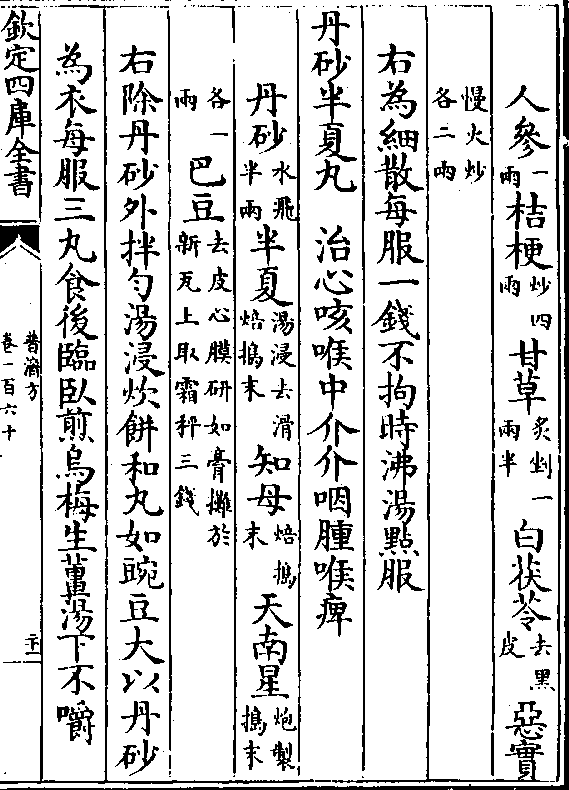 人參一兩桔梗炒四兩甘草炙剉一兩半白茯苓去黑皮惡實
慢火炒各二兩
右為細散每服一錢不拘時沸湯點服
丹砂半夏丸　治心咳喉中介介咽腫喉痺
丹砂水飛半兩半夏湯浸去滑焙搗末知母焙搗末天南星炮製搗末
各一兩巴豆去皮心膜研如膏攤於新瓦上取霜秤三錢
右除丹砂外拌勻湯浸炊餅和丸如豌豆大以丹砂
為衣每服三丸食後臨臥煎烏梅生薑湯下不嚼
欽定四庫全書
普濟方
卷一百六十